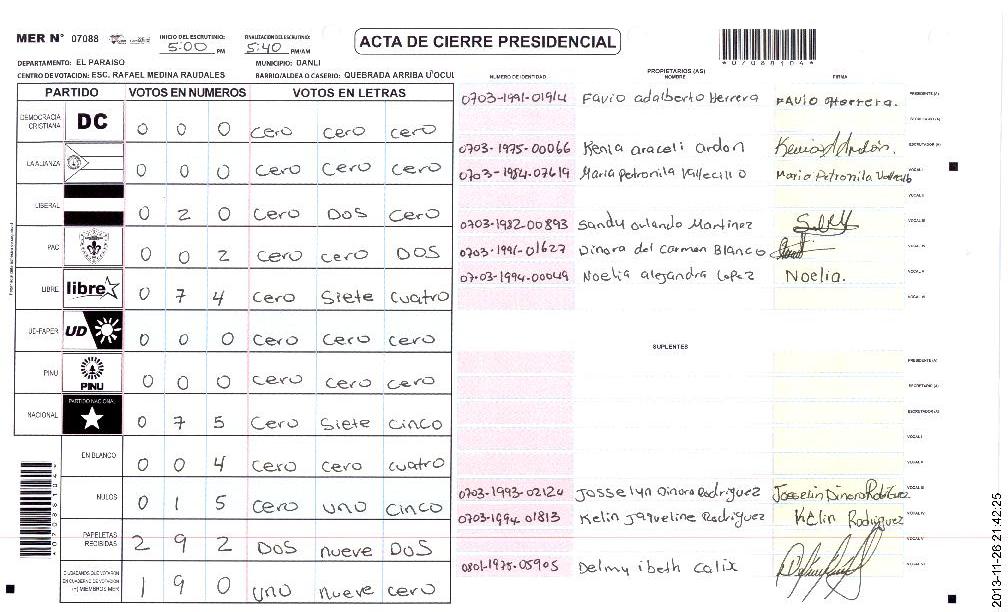 MER N° 07088
INICIO DEL ESCRUTINIO: 5:00 PM
FINALIZACION DEL ESCRUTINIO: 5:40 PM/AM
ACTA DE CIERRE PRESIDENCIAL
*07088104*
DEPARTAMENTO: EL PARAISO
MUNICIPIO: DANLI
CENTRO DE VOTACION: ESC. RAFAEL MEDINA RAUDALES
BARRIO/ALDEA O CASERIO: QUEBRADA ARRIBA
PARTIDO VOTOS EN NUMEROS VOTOS EN LETRAS
DEMOCRACIA CRISTIANA DC 0 0 0 cero cero cero
LA ALIANZA 0 0 0 cero cero cero
LIBERAL 0 2 0 cero DOS cero
PAC 0 0 2 cero cero DOS
LIBRE libre 0 7 4 cero Siete cuatro
UD-FAPER UD 0 0 0 cero cero cero
PINU PINU 0 0 0 cero cero cero
NACIONAL PARTIDO NACIONAL 0 7 5 cero Siete cinco
EN BLANCO 0 0 4 cero cero cuatro
NULOS 0 1 5 cero uno cinco
PAPELETAS RECIBIDAS 2 9 2 DOS nueve DOS
CIUDADANOS QUE VOTARON EN CUADERNO DE VOTACION (+) MIEMBROS MER 1 9 0 uno nueve cero
PROPIETARIOS (AS)
NUMERO DE IDENTIDAD NOMBRE FIRMA
0703-1991-01914 Favio adalberto Herrera FAVIO Herrera. PRESIDENTE (A)
SECRETARIO (A)
0703-1975-00066 Kenia araceli ardon Kenia Ardón. ESCRUTADOR (A)
0703-1984-07619 Maria Petronila Vallecillo Maria Petronila Vallecillo VOCAL I
VOCAL II
0703-1982-00893 Sandy orlando Martinez VOCAL III
0703-1991-01627 Dinora del Carmen Blanco VOCAL IV
0703-1994-00049 Noelia alejandra Lopez Noelia. VOCAL V
VOCAL VI
SUPLENTES
PRESIDENTE (A)
SECRETARIO (A)
ESCRUTADOR (A)
VOCAL I
VOCAL II
0703-1993-02124 Josselyn Dinora Rodriguez Josselin Dinora Rodriguez VOCAL III
0703-1994 01813 Kelin Jaqueline Rodriguez Kelin Rodriguez VOCAL IV
VOCAL V
0801-1975-05905 Delmy ibeth Calix VOCAL VI
*07088104*
2013-11-26 21:42:25